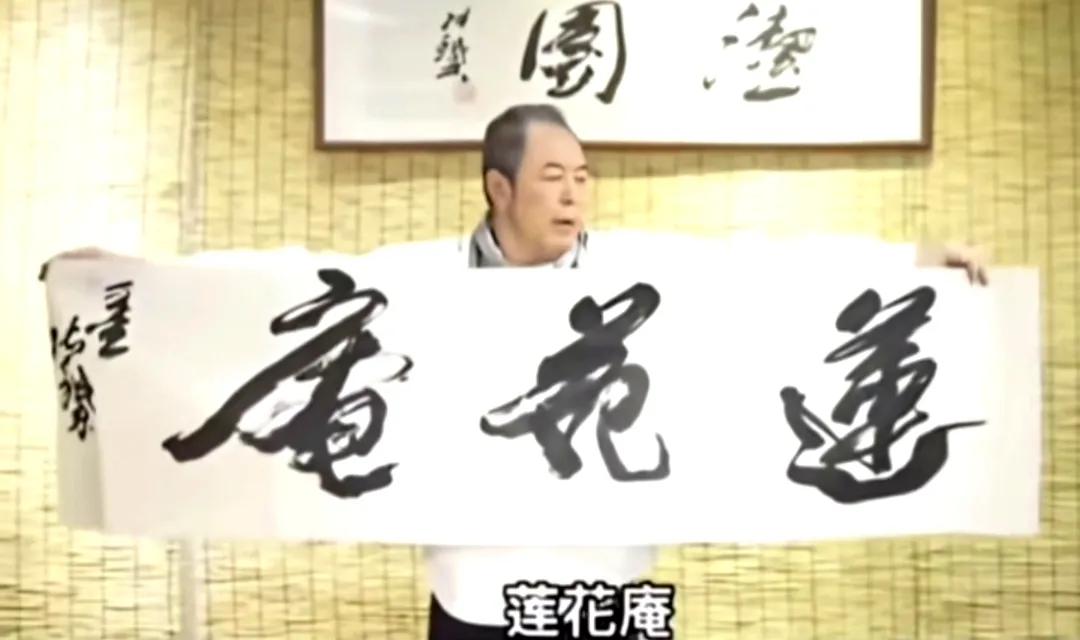 潔園
蓮花庵
莲花庵